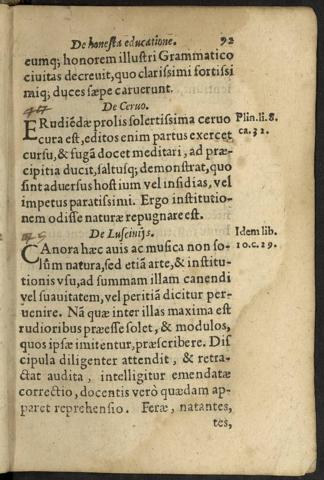 De honesta educatione. 92
eumq; honorem illustri Grammatico
ciuitas decreuit, quo clarissimi fortissi
miq; duces sæpe caruerunt.
De Ceruo.
ERudiẽdæ prolis solertissima ceruo Plin. li. 8.
cura est, editos enim partus exercet ca. 32.
cursu, & fugã docet meditari, ad præ-
cipitia ducit, saltusq; demonstrat, quo
sint aduersus hostium vel insidias, vel
impetus paratissimi. Ergo institutio-
nem odisse naturæ repugnare est.
De Luscinijs. Idem lib.
CAnora hæc auis ac musica non so- 10. c. 29.
lũm natura, sed etiã arte, & institu-
tionis vsu, ad summam illam canendi
vel suauitatem, vel peritiã dicitur per-
uenire. Nã quæ inter illas maxima est
rudioribus præesse solet, & modulos,
quos ipsæ imitentur, præscribere. Dis
cipula diligenter attendit, & retra-
ctat audita, intelligitur emendatæ
correctio, docentis verò quædam ap-
paret reprehensio. Feræ, natantes,
tes,